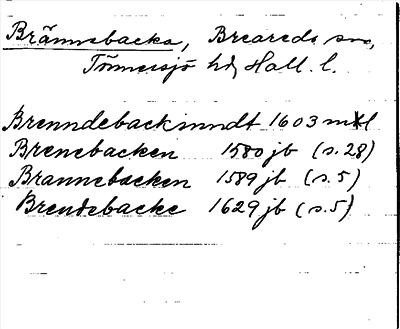 Brännebacka, Breareds sn,
Tönnersjö hd, Hall. l.
Brenndebackmndt 1603 mtl
Brenebacken 1580 jb (s. 28)
Brannebacken 1589 jb (s. 5)
Brendebacke 1629 jb (s. 5)